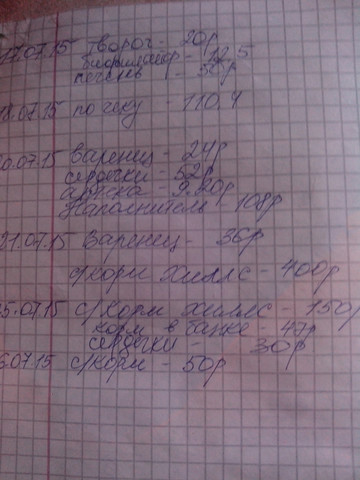 17.07.15 творог - 20р
бифилайф - 12.5
печень - 38р
18.07.15 по чеку - 110.4
20.07.15 Варенец - 24р
сердечки - 52р
аптека - 9.20р
Наполнитель - 108р
21.07.15 Варенец - 36р
с/корм хиллс - 400р
25.07.15 с/корм хиллс - 150р
корм в банке - 47р
сердечки - 30р
6.07.15 с/корм - 50р